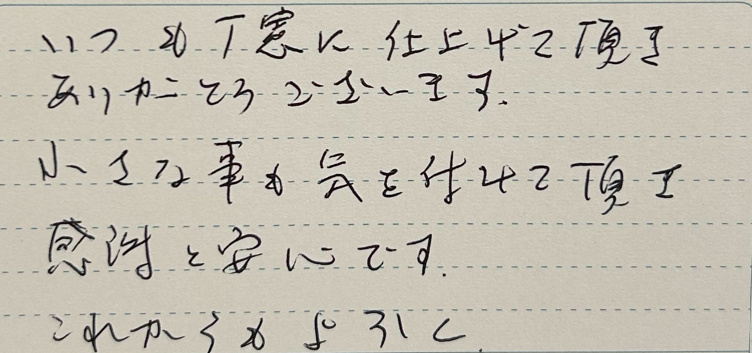 いつも丁寧に仕上げて頂き
ありがとうございます.
小さな事も気を付けて頂き
感謝と安心です.
これからもよろしく